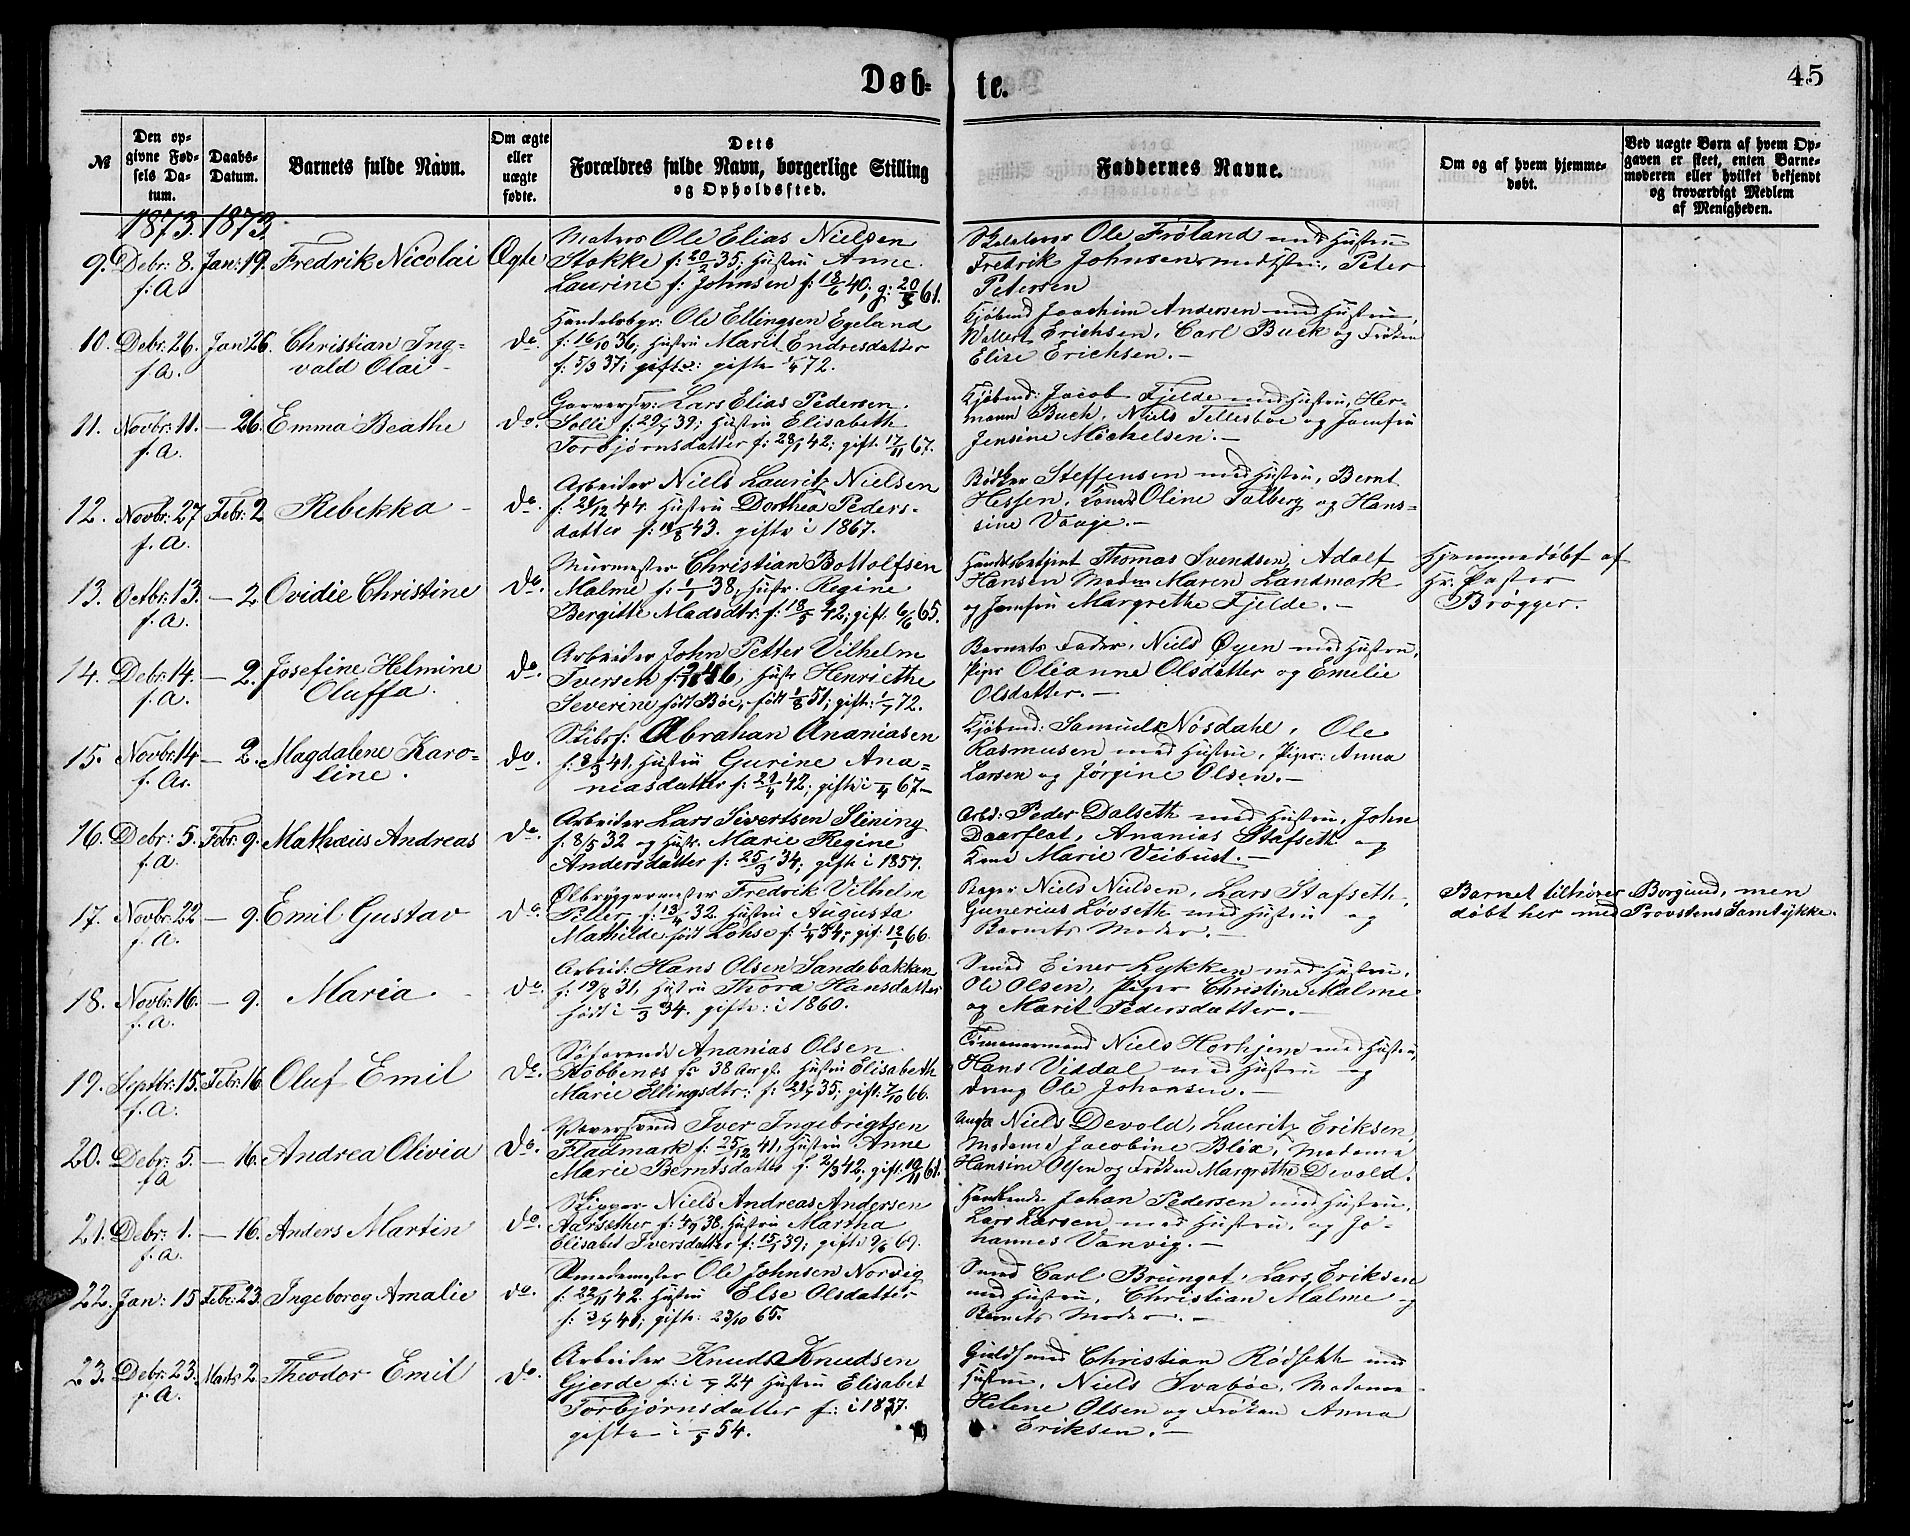 Døb-
te.
45
№
Den op-
givne Fød-
sels Da-
tum.
Daabs-
Datum.
Barnets fulde Navn.
Om ægte
eller
uægte
fødte.
Dets
Forældres fulde Navn, borgerlige Stilling
og Opholdssted.
Faddernes Navne.
Om og af hvem hjemme-
døbt.
Ved uægte Børn af hvem Op-
gaven er skeet, enten Barne-
moderen eller hvilket bekjendt
og troværdigt Medlem
af Menigheden.
1873. 1873.
9. Debr: 8. f: A. Jan: 19. Fredrik Nicolai Ægte
Ole Elias Nielsen
Stokke f: 20/2 35; Hustru Anne
Laurine f: Johnsen f: 18/6 40; g: 20/3 61.
Ole Frøland med Hustru
Fredrik Johnsen med Hstru, Peter
Petersen
10. Debr: 26. f. A. Jan 26. Christian Ing-
vald Olai do.
Handelsbgr: Ole Ellingsen Egeland
f: 16/10 36, Hustru Marit Endresdatter
f: 5/3 37; gifte 1/4 72.
Kjøbmd Joachim Andersen med Hustru,
Wallert Erichsen, Carl Buck og Frøken
Elise Erichsen.-
11. Novbr: 11. f. A. - 26. Emma Beathe do.
Garversv: Lars Elias Pedersen
Solli f: 29/7 39; Hustru Elisabeth
Torbjørnsdatter f: 28/1 42; gift: 17/11 67.
Kjøbmd: Jacob Fjelde med Hustru, Her-
mann Buch, Niels Tellesbøe og Jomfru
Jensine Mickelsen.-
12. Novbr: 27 f. A. Febr: 2 Rebekka do.
Arbeider Niels Lauritz Nielsen
f: 21/12 44. Hustru Dorthea Peders-
datter f: 14/8 43. gifte i 1867.
Steffensen med Hustru, Bernt
Hessen, Oline Talberg og Hans-
sine Vaage.-
13. Octbr: 13. f. A. - 2. Ovidie Christine do.
Murmester Christian Bottolfsen
Malme f: 1/1 38, Hustr. Regine
Bergitte Madsdtr: f: 18/5 42; gift. 6/6 65.
Thomas Svendsen, Adolf
Hansen Madam Maren Landmark
og Jomfru Margrethe Fjelde.-
Hjemmedøbt af
Hr. Pastor
Brøgger.
14. Debr: 14. f. A. - 2. Josefine Helmine
Oluffa. do.
Arbeider John Petter Vilhelm
Iversen Hustr Henriethe
Severine født Bøe, født 1/8 51; gift: 1/7 72.
Barnets Fader, Niels Øyen med Hustru,
Piger Olianne Olsdatter og Emilie
Olsdatter.-
15. Novbr: 14 f. A. - 2. Magdalene Karo-
line. do.
Skibsf: Abrahan Ananiasen
f: 8/3 41, Hustru Gurine Ana-
niasdatter f: 29/4 42; gifte i 67-
Kjøbmd: Samuel Nøsdahl, Ole
Rasmusen med Hustru, Piger: Anna
Larsen og Jørgine Olsen.-
16. Debr: 5. f. A. Febr: 9. Mathæus Andreas do.
Arbeider Lars Sivertsen Slining
f. 8/5 32 og Hustr. Marie Regine
Andersdatter f: 25/3 34; gifte i 1857.
Arbd: Peder Dalseth med Hustru, John
Daarflat, Ananias Stafseth og
Kone Marie Veibust.-
17. Novbr: 22 f. A. - 9. Emil Gustav do.
Ølbryggermester Fredrik Vilhelm
Piller f: 13/4 32. Hustru Augusta
Mathilde født Lohse f: 1/4 34; gif. 12/1 66.
Niels Nielsen, Lars Stafseth,
Gunerius Løvseth med Hustru og
Barnets Moder.-
Barnet tilhører Borgund, men
døbt her med Provstens Samtykke.
18. Novbr: 16. f. A. - 9. Maria do.
Arbeid: Hans Olsen Sandebakken
f: 19/8 31, Hustru Thora Hansdatter
født i 1/3 34. gifte: i 1860.
Smed Einer Lykken med Hustru,
Ole Olsen, Piger Christine Malme
og Marit Pedersdatter.-
19. Septbr: 15. f. A. Febr: 16. Oluf Emil do.
Søfarende Ananias Olsen
38 Aar gl. Hustru Elisabeth
Marie Ellingsdtr: f: 29/7 35; gift: 7/10 66.
Tømmermand Niels Horhjem med Hustru,
Hans Viddal med Hustru og
dreng Ole Johansen.-
20. Debr: 5. f A - 16. Andrea Olivia do.
Iver Ingebrigtsen
Fladmark f: 25/12 41, Hustru Anne
Marie Berntsdatter f: 2/3 42, gift: 19/11 61.
Niels Devold, Lauritz Eriksen,
Madame Jacobine Blix, Madame
Hansine Olsen og Frøken Margrethe Devold.
21. Debr: 1. f. A. - 16. Anders Martin do.
Skipper Niels Andreas Andersen
Aarsæther f: 4/9 38, Hustru Martha
Elisabet Iversdatter f: 15/1 39; gifte 9/6 67.
Johan Pedersen med Hustru,
Lars Larsen med Hustru, og Jo-
hannes Vanvig.-
22. Jan: 15 Febr: 23 Ingeborg Amalie do.
Smedemester Ole Johnsen Norvig
f. 22/11 42. Hustru Else Olsdatter
f: 3/7 41; gifte: 23/10 65.
Smed Carl Brunget, Lars Eriksen
med Hustru, Christian Malme og
Barnets Moder.-
23. Debr: 23. f A. Marts 2. Theodor Emil do.
Arbeider Knud Knudsen
Gjerde f: i 24 Hustru Elisabet
Torbjørnsdatter f: i 1827.
gifte i 54.
Guldsmed Christian Rødseth med
Hustru, Niels Svabøe, Madame
Helene Olsen og Frøken Anna
Eriksen.-